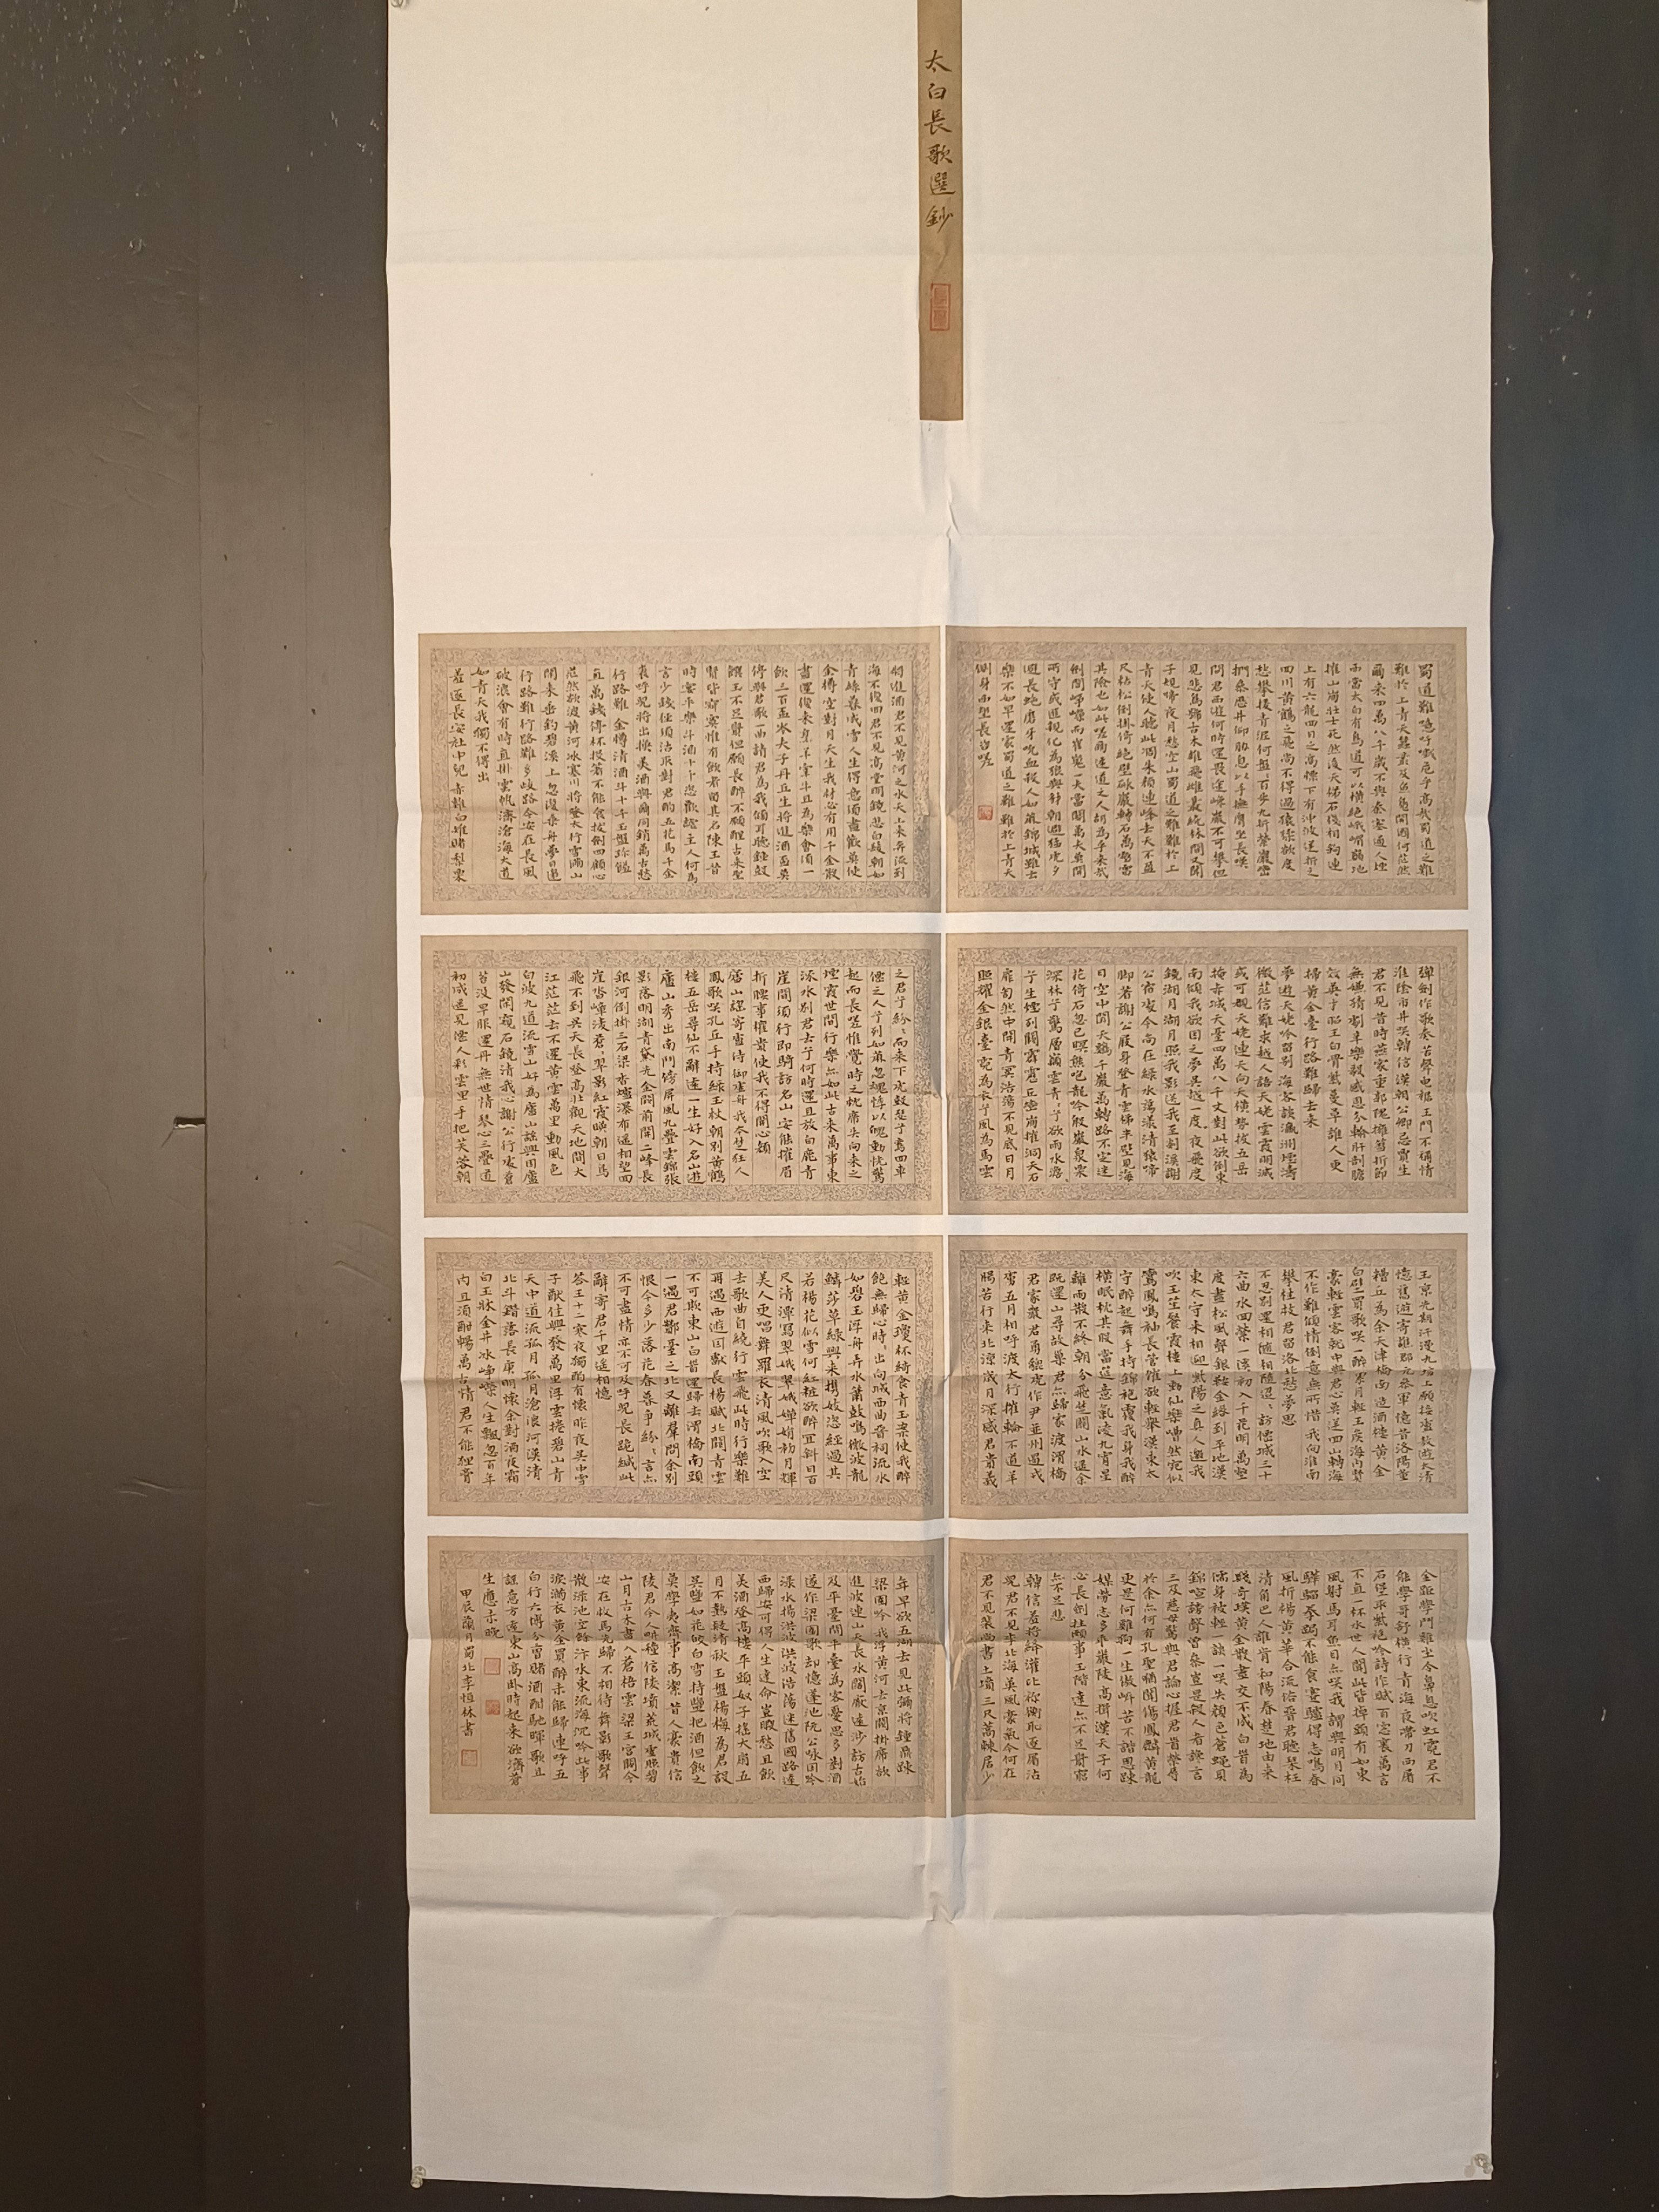 太白長歌選鈔
蜀道難噫吁嚱危乎高哉蜀道之難
難於上青天蠶叢及魚鳧開國何茫然
爾來四萬八千歲不與秦塞通人煙
西當太白有鳥道可以橫絕峨嵋巔地
摧山崩壯士死然後天梯石棧相鉤連
上有六龍回日之高標下有沖波逆折之
回川黃鶴之飛尚不得過猿猱欲度
愁攀援青泥何盤盤百步九折縈巖巒
捫參歷井仰脅息以手撫膺坐長嘆
問君西遊何時還畏途巉巖不可攀但
見悲鳥號古木雄飛雌從繞林間又聞
子規啼夜月愁空山蜀道之難難於上
青天使人聽此凋朱顏連峰去天不盈
尺枯松倒掛倚絕壁砯巖轉石萬壑雷
其險也如此嗟爾遠道之人胡為乎來哉
劍閣崢嶸而崔嵬一夫當關萬夫莫開
所守或匪親化為狼與豺朝避猛虎夕
避長蛇磨牙吮血殺人如麻錦城雖云
樂不如早還家蜀道之難難於上青天
側身西望長咨嗟
將進酒君不見黃河之水天上來奔流到
海不復回君不見高堂明鏡悲白髮朝如
青絲暮成雪人生得意須盡歡莫使
金樽空對月天生我材必有用千金散
盡還復來烹羊宰牛且為樂會須一
飲三百盃岑夫子丹丘生將進酒盃莫
停與君歌一曲請君為我傾耳聽鐘鼓
饌玉不足貴但願長醉不願醒古來聖
賢皆寂寞惟有飲者留其名陳王昔
時宴平樂斗酒十千恣歡謔主人何為
言少錢徑須沽取對君酌五花馬千金
裘呼兒將出換美酒與爾同銷萬古愁
行路難金樽清酒斗十千玉盤珍饈
直萬錢停杯投箸不能食拔劍四顧心
茫然欲渡黃河冰塞川將登太行雪滿山
閑來垂釣碧溪上忽復乘舟夢日邊
行路難行路難多歧路今安在長風
破浪會有時直掛雲帆濟滄海大道
如青天我獨不得出
羞逐長安社中兒赤雞白雉賭梨栗
彈劍作歌奏苦聲曳裾王門不稱情
淮陰市井笑韓信漢朝公卿忌賈生
君不見昔時燕家重郭隗擁篲折節
無嫌猜劇辛樂毅感恩分輸肝剖膽
效英才昭王白骨縈蔓草誰人更
掃黃金臺行路難歸去來
夢遊天姥吟留別海客談瀛洲煙濤
微茫信難求越人語天姥雲霞明滅
或可覩天姥連天向天橫勢拔五岳
掩赤城天臺四萬八千丈對此欲倒東
南傾我欲因之夢吳越一夜飛度
鏡湖月湖月照我影送我至剡溪謝
公宿處今尚在綠水蕩漾清猿啼
腳著謝公屐身登青雲梯半壁見海
日空中聞天雞千巖萬轉路不定迷
花倚石忽已暝熊咆龍吟殷巖泉慄
深林兮驚層巔雲青青兮欲雨水澹
兮生煙列闕霹靂丘巒崩摧洞天石
扉訇然中開青冥浩蕩不見底日月
照耀金銀臺霓為衣兮風為馬雲
之君兮紛紛而來下虎鼓瑟兮鸞回車
僊之人兮列如麻忽魂悸以魄動怳驚
起而長嗟惟覺時之枕席失向來之
煙霞世間行樂亦如此古來萬事東
流水別君去兮何時還且放白鹿青
崖間須行即騎訪名山安能摧眉
折腰事權貴使我不得開心顏
廬山謠寄盧侍御虛舟我本楚狂人
鳳歌笑孔丘手持綠玉杖朝別黃鶴
樓五岳尋仙不辭遠一生好入名山遊
廬山秀出南斗傍屏風九疊雲錦張
影落明湖青黛光金闕前開二峰長
銀河倒掛三石梁香爐瀑布遙相望回
崖沓嶂凌蒼蒼翠影紅霞映朝日鳥
飛不到吳天長登高壯觀天地間大
江茫茫去不還黃雲萬里動風色
白波九道流雪山好為廬山謠興因廬
山發閑窺石鏡清我心謝公行處蒼
苔沒早服還丹無世情琴心三疊道
初成遙見僊人彩雲里手把芙蓉朝
玉京先期汗漫九垓上願接盧敖遊太清
憶舊遊寄譙郡元參軍憶昔洛陽董
糟丘為余天津橋南造酒樓黃金
白璧買歌笑一醉累月輕王侯海內賢
豪輕雲客就中與君心莫逆回山轉海
不作難傾情倒意無所惜我向淮南
攀桂枝君留洛北愁夢思
不忍別還相隨相隨迢迢訪僊城三十
六曲水回縈一溪初入千花明萬壑
度盡松風聲銀鞍金絡到平地漢
東太守來相迎紫陽之真人邀我
吹玉笙餐霞樓上動仙樂嘈然宛似
鸞鳳鳴袖長管催欲輕舉漢東太
守醉起舞手持錦袍覆我身我醉
橫眠枕其股當筵意氣凌九霄星
離雨散不終朝分飛楚關山水遙余
既還山尋故巢君亦歸家渡渭橋
君家嚴君勇貔虎作尹并州遏戎
虜五月相呼渡太行摧輪不道羊
腸苦行來北涼歲月深感君貴義
輕黃金瓊杯綺食青玉案使我醉
飽無歸心時時出向城西曲晉祠流水
如碧玉浮舟弄水簫鼓鳴微波龍
鱗莎草綠興來攜妓恣經過其
若楊花似雪何紅粧欲醉宜斜日百
尺清潭寫翠娥翠娥嬋娟初月輝
美人更唱舞羅衣清風吹歌入空
去歌曲自繞行雲飛此時行樂難
再遇西遊因獻長楊賦北闕青雲
不可期東山白首還歸去渭橋南頭
一遇君酇臺之北又離群問余別
恨今多少落花春暮爭紛紛言亦
不可盡情亦不可及呼兒長跪緘此
辭寄君千里遙相憶
答王十二寒夜獨酌有懷昨夜吳中雪
子猷佳興發萬里浮雲捲碧山青
天中道流孤月孤月滄浪河漢清
北斗錯落長庚明懷余對酒夜霜
白玉牀金井冰崢嶸人生飄忽百年
內且須酣暢萬古情君不能狸膏
金距學鬥雞坐令鼻息吹虹霓君不
能學哥舒橫行青海夜帶刀西屠
石堡取紫袍吟詩作賦北窗裏萬言
不直一杯水世人聞此皆掉頭有如東
風射馬耳魚目亦笑我謂與明月同
驊騮拳跼不能食蹇驢得志鳴春
風折楊黃華合流俗晉君聽琴枉
清角巴人誰肯和陽春楚地由來
賤奇璞黃金散盡交不成白首為
儒身被輕一談一笑失顏色蒼蠅貝
錦喧謗聲曾參豈是殺人者讒言
三及慈母驚與君論心握君手榮辱
於余亦何有孔聖猶聞傷鳳麟董龍
更是何雞狗一生傲岸苦不諧恩疎
媒勞志多乖嚴陵高揖漢天子何
必長劍拄頤事玉階達亦不足貴窮
亦不足悲
韓信羞將絳灌比禰衡恥逐屠沽
兒君不見李北海英風豪氣今何在
君不見裴尚書土墳三尺蒿棘居少
年早欲五湖去見此彌將鐘鼎疎
梁園吟我浮黃河去京闕掛席欲
進波連山天長水闊厭遠涉訪古始
及平臺間平臺為客憂思多對酒
遂作梁園歌却憶蓬池阮公詠因吟
淥水揚洪波洪波浩蕩迷舊國路遠
西歸安可得人生達命豈暇愁且飲
美酒登高樓平頭奴子搖大扇五
月不熱疑清秋玉盤楊梅為君設
吳鹽如花皎白雪持鹽把酒但飲之
莫學夷齊事高潔昔人豪貴信
陵君今人耕種信陵墳荒城虛照碧
山月古木盡入蒼梧雲梁王宮闕今
安在枚馬先歸不相待舞影歌聲
散淥池空餘汴水東流海沉吟此事
淚滿衣黃金買醉未能歸連呼五
白行六博分曹賭酒酣馳暉歌且
謠意方遠東山高臥時起來欲濟蒼
生應未晚
甲辰蘭月蜀北李恒林書